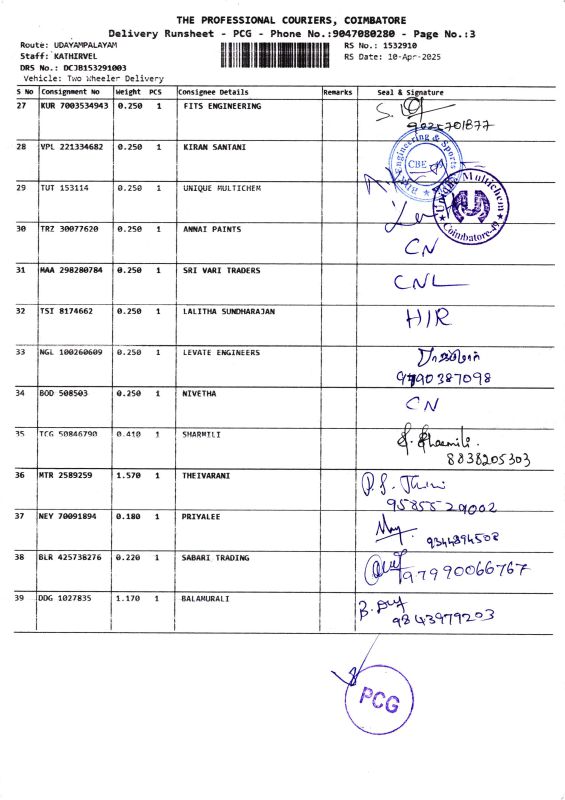 THE PROFESSIONAL COURIERS, COIMBATORE
Delivery Runsheet - PCG - Phone No.:9047080280 - Page No.:3
Route: UDAYAMPALAYAM RS No.: 1532910
Staff: KATHIRVEL RS Date: 10-Apr-2025
DRS No.: DCJB153291003
Vehicle: Two Wheeler Delivery
S No Consignment No Weight PCS Consignee Details Remarks Seal & Signature
27 KUR 7003534943 0.250 1 FITS ENGINEERING
28 VPL 221334682 0.250 1 KIRAN SANTANI
Engineering & Sports
CBE
29 TUT 153114 0.250 1 UNIQUE MULTICHEM
Unique Multichem
Coimbatore-49
30 TRZ 30077620 0.250 1 ANNAI PAINTS CN
31 MAA 298280784 0.250 1 SRI VARI TRADERS CNL
32 TSI 8174662 0.250 1 LALITHA SUNDHARAJAN H/R
33 NGL 100260609 0.250 1 LEVATE ENGINEERS
9790387098
34 BOD 508503 0.250 1 NIVETHA CN
35 TCG 50846790 0.410 1 SHARMILI
8838205303
36 MTR 2589259 1.570 1 THEIVARANI
9585529002
37 NEY 70091894 0.180 1 PRIYALEE
9344894508
38 BLR 425738276 0.220 1 SABARI TRADING
9799006676​7
39 DDG 1027835 1.170 1 BALAMURALI
9843979203
PCG